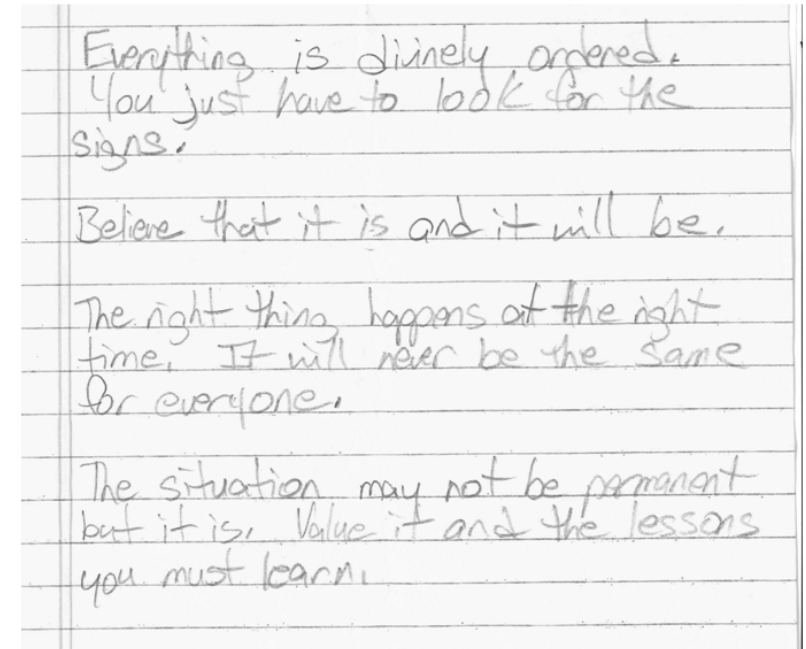 Everything is divinely ordered.
You just have to look for the
signs.
Believe that it is and it will be.
The right thing happens at the right
time. It will never be the same
for everyone.
The situation may not be permanent
but it is. Value it and the lessons
you must learn.